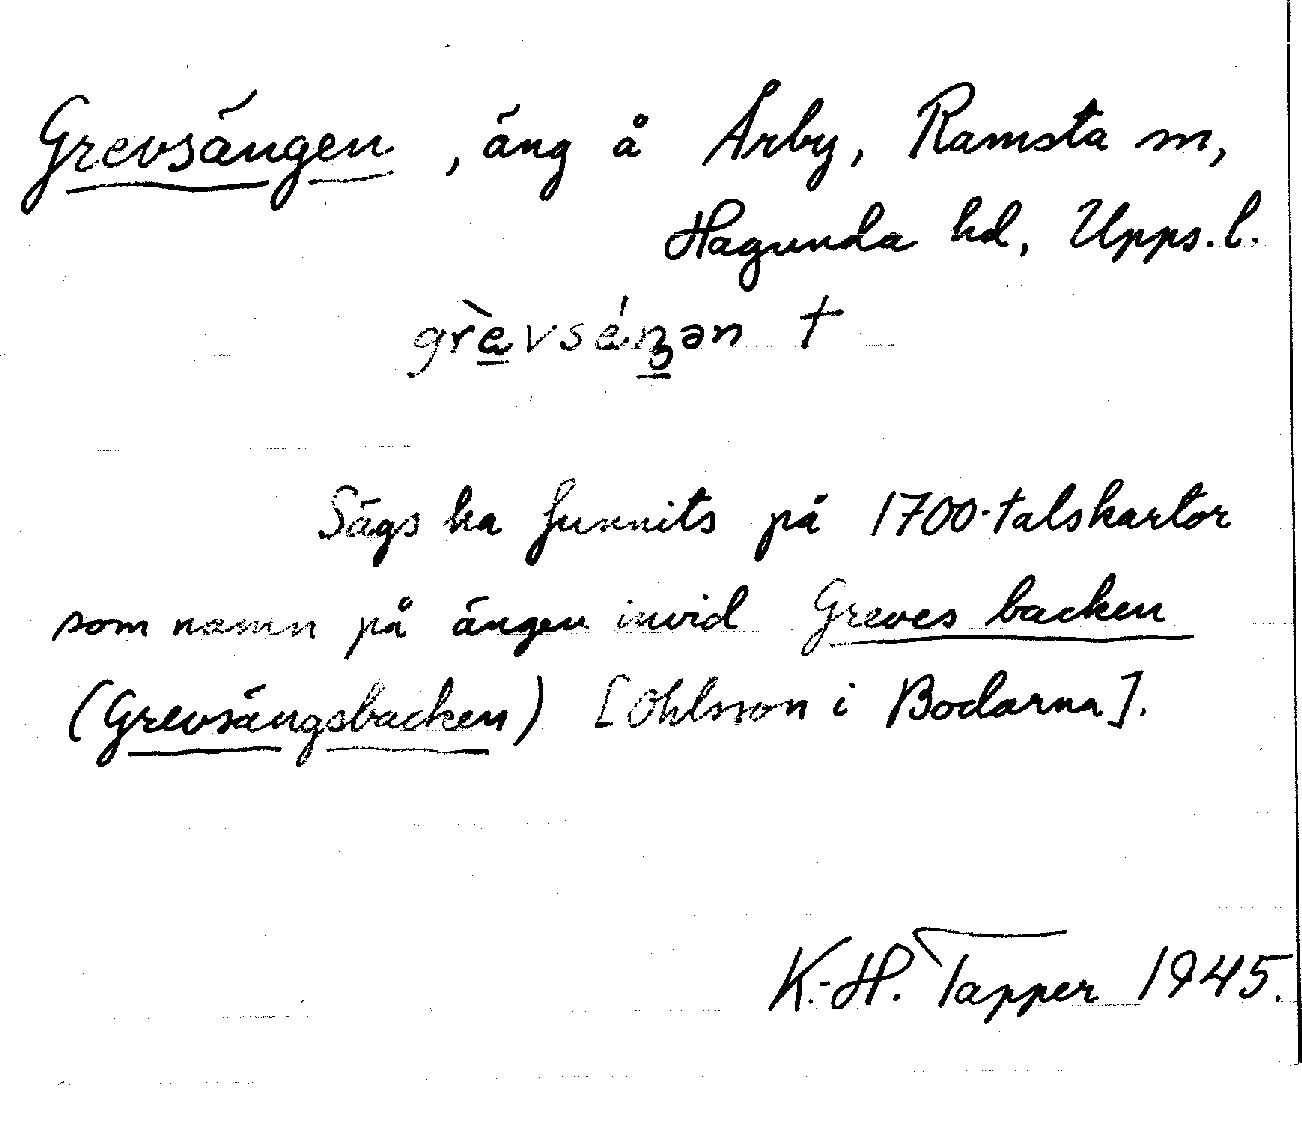 Grevsängen, äng å Årby, Ramsta sn,
Hagunda hd, Upps. l.
grèvsén̡ən †
Sägs ha funnits på 1700-talskartor
som namn på ängen invid Greves backen
(Grevsängsbacken) [Ohlsson i Bodarna].
K.-H. Tapper 1945.